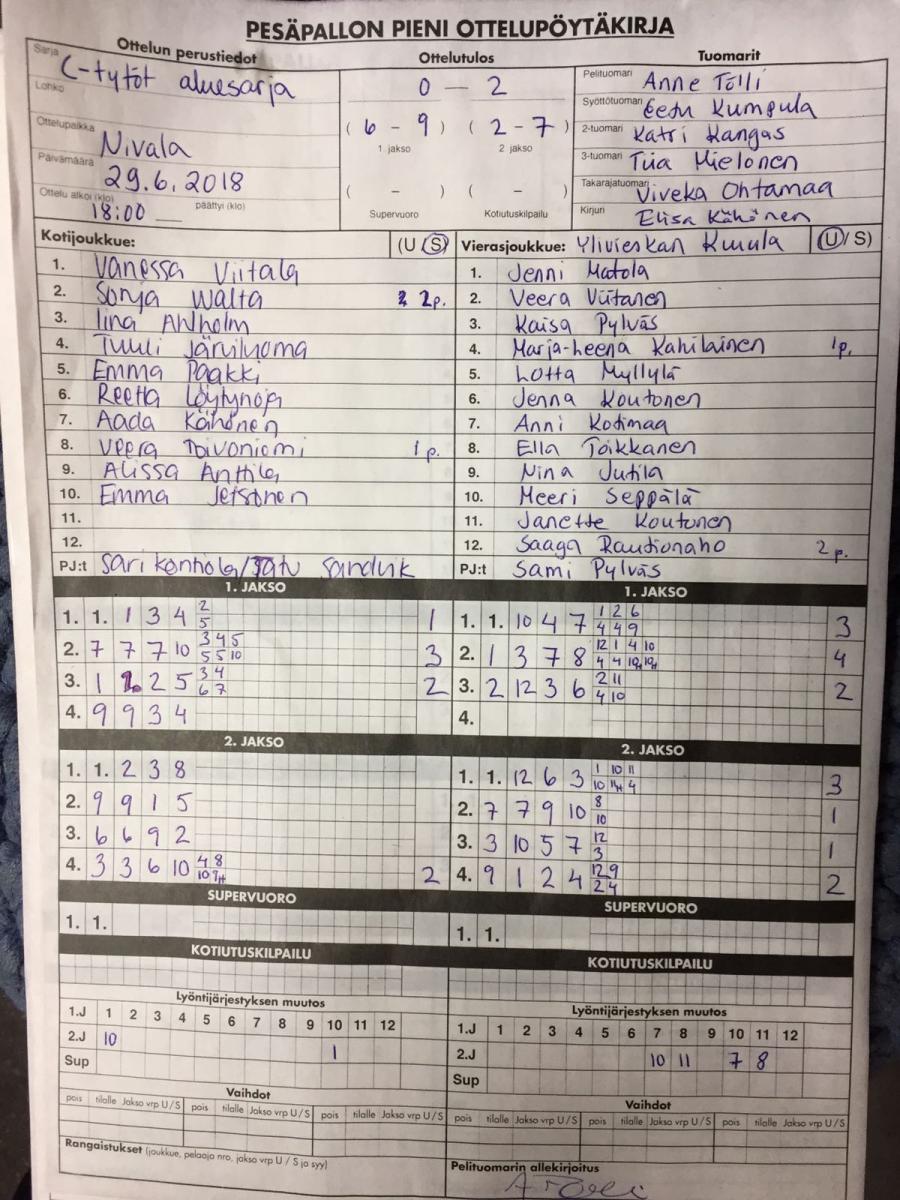 PESÄPALLON PIENI OTTELUPÖYTÄKIRJA
Ottelun perustiedot
Sarja C-tytöt aluesarja
Lohko
Ottelupaikka Nivala
Päivämäärä 29.6.2018
Ottelu alkoi (klo) 18:00 päättyi (klo)
Ottelutulos
0 – 2
( 6 – 9 ) ( 2 – 7 )
1 jakso 2 jakso
( – ) ( – )
Supervuoro Kotiutuskilpailu
Tuomarit
Pelituomari Anne Tölli
Syöttötuomari Eetu Kumpula
2-tuomari Katri Kangas
3-tuomari Tiia Mielonen
Takarajatuomari Viveka Ohtamaa
Kirjuri Elisa Kähönen
Kotijoukkue: (U S)
1. Vanessa Viitala
2. Sonja Walta 2p.
3. Iina Ahlholm
4. Tuuli Järviluoma
5. Emma Paakki
6. Reetta Löytynoja
7. Aada Kähönen
8. Veera Toivoniemi 1p.
9. Alissa Anttila
10. Emma
11.
12.
PJ:t Sari
Vierasjoukkue: Ylivieskan Kuula (U/S)
1. Jenni Matola
2. Veera Viitanen
3. Kaisa Pylväs
4. Marja-Leena Kahilainen 1p.
5. Lotta Myllylä
6. Jenna Koutonen
7. Anni Kotimaa
8. Ella Toikkanen
9. Nina Jutila
10. Meeri Seppälä
11. Janette Koutonen
12. Saaga Rautionaho 2p.
PJ:t Sami Pylväs
1. JAKSO
1. 1. 1 3 4 2 1
5
2. 7 7 7 10 3 4 5 3
5 5 10
3. 1 2 5 3 4 2
6 7
4. 9 9 3 4
2. JAKSO
1. 1. 2 3 8
2. 9 9 1 5
3. 6 6 9 2
4. 3 3 6 10 4 8 2
10 9H
SUPERVUORO
1. 1.
KOTIUTUSKILPAILU
Lyöntijärjestyksen muutos
1.J 1 2 3 4 5 6 7 8 9 10 11 12
2.J 10 1
Sup
Vaihdot
pois tilalle Jakso vrp U/S pois tilalle Jakso vrp U/S pois tilalle Jakso vrp U/S
Rangaistukset (joukkue, pelaaja nro, jakso vrp U / S ja syy)
1. JAKSO
1. 1. 10 4 7 1 2 6 3
4 4 9
2. 1 3 7 8 12 1 4 10 4
4 4 10H 10H
3. 2 12 3 6 2 11 2
4 10
4.
2. JAKSO
1. 1. 12 6 3 1 10 11 3
10 11H 4
2. 7 7 9 10 8 1
10
3. 3 10 5 7 12 1
3
4. 9 1 2 4 12 9 2
2 4
SUPERVUORO
1. 1.
KOTIUTUSKILPAILU
Lyöntijärjestyksen muutos
1.J 1 2 3 4 5 6 7 8 9 10 11 12
2.J 10 11 7 8
Sup
Vaihdot
pois tilalle Jakso vrp U/S pois tilalle Jakso vrp U/S pois tilalle Jakso vrp U/S
Pelituomarin allekirjoitus
A Tölli